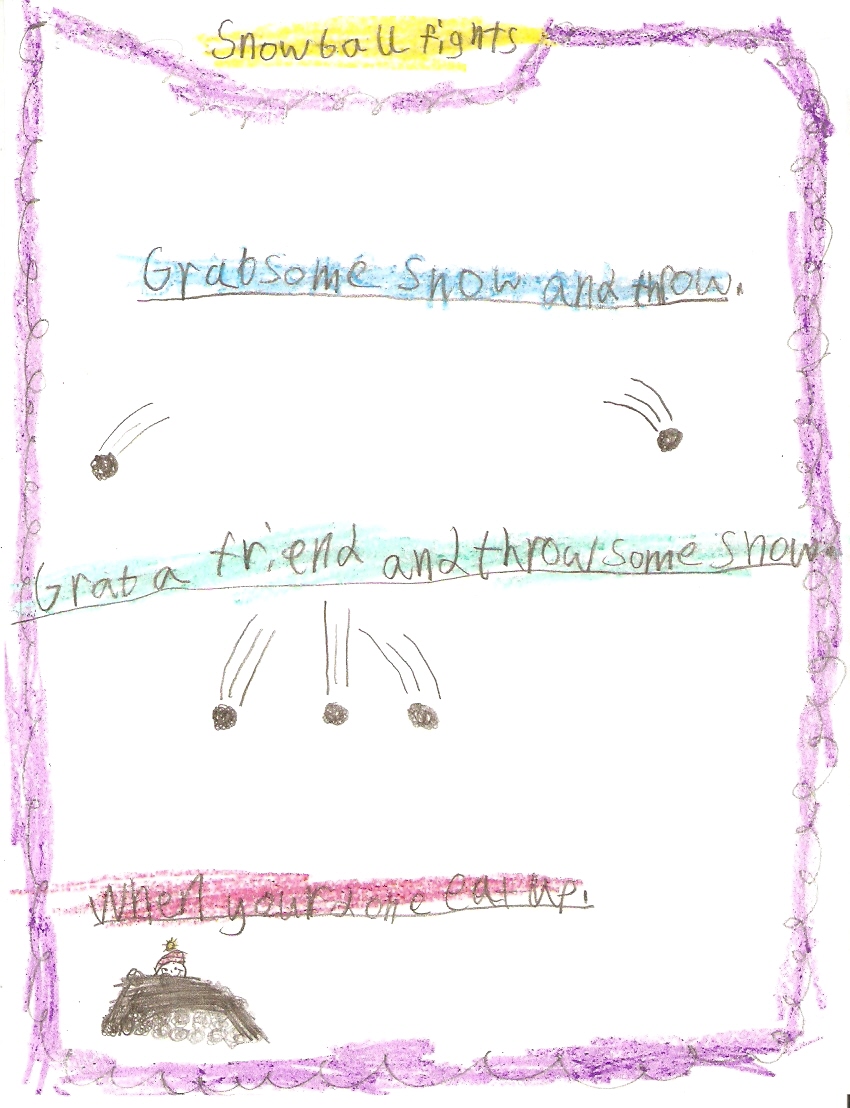 Snowball fights
Grab some snow and throw.
Grab a friend and throw some snow.
When your done eat up.